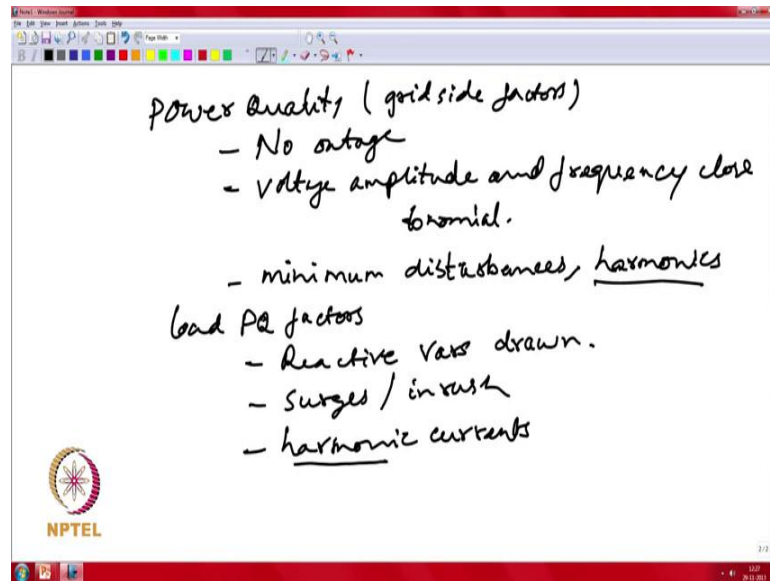 Note1 - Windows Journal
File Edit View Insert Actions Tools Help
Page Width
B I
Power Quality (grid side factors)
- No outage
- Voltage amplitude and frequency close
to nomial.
- minimum disturbances, harmonics
load PQ factors
- Reactive Vars drawn.
- Surges / inrush
- harmonic currents
NPTEL
2/2
12:27